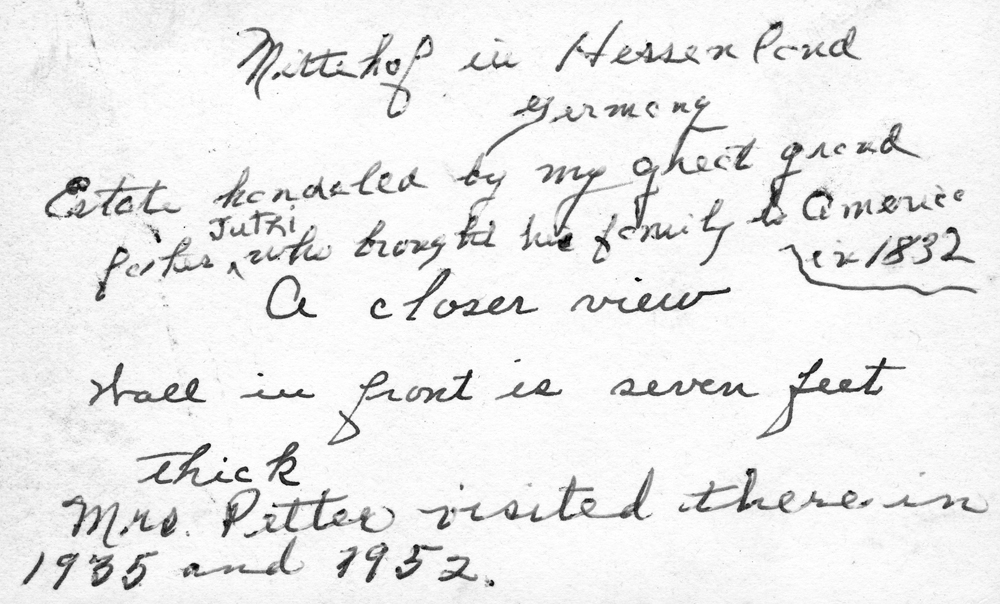 Mittehof in Hessen Land
Germany
Estate handeled by my great grand
Jutzi
father ^ who brought his family to America
in 1832
A closer view
Wall in front is seven feet
thick
Mrs. Petter visited there in
1935 and 1952.